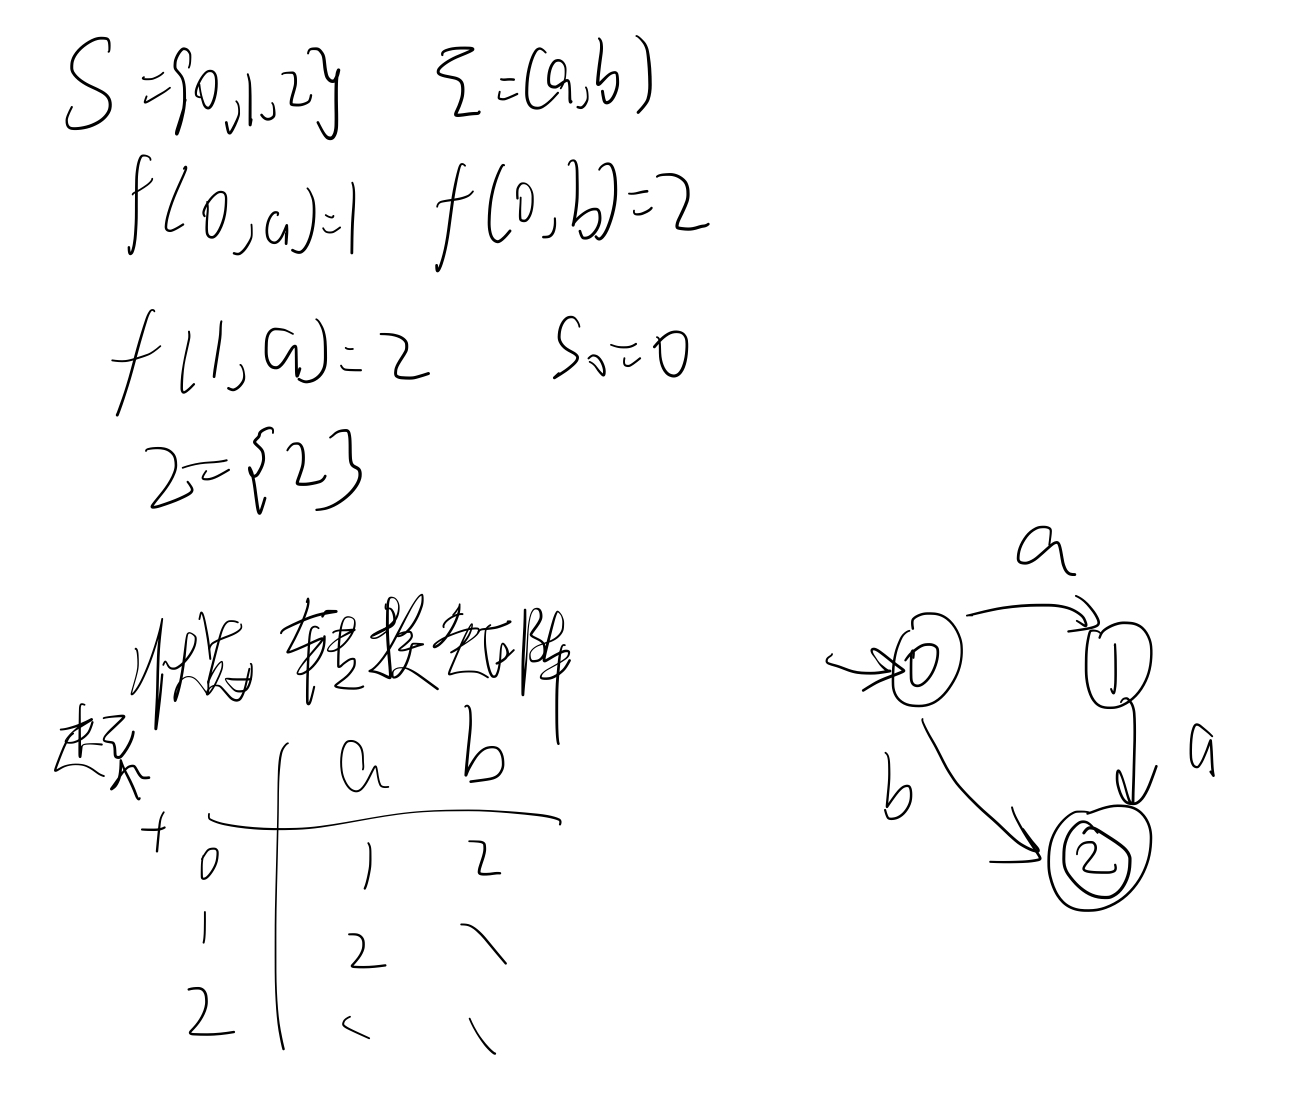 S={0,1,2} Σ=(a,b)
f(0,a)=1 f(0,b)=2
f(1,a)=2 S0=0
Z={2}
状态转换矩阵
a b
+ 0 1 2
1 2 \
2 \ \
a
0 1
b a
2